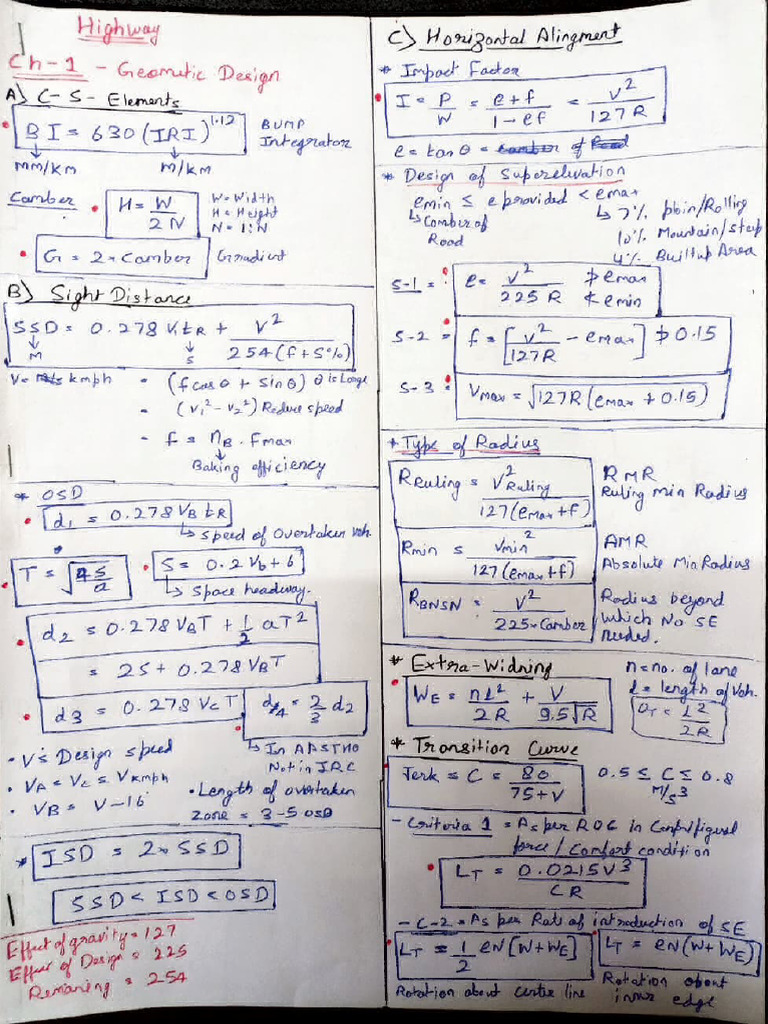 Highway
Ch-1 - Geometic Design
A) C-S- Elements
BI = 630 (IRI)^1.12 BUMP Integrator
MM/KM M/KM
Camber H = W/2N W= Width
H = Height
N = 1:N
G = 2 × Camber Gradient
B) Sight Distance
SSD = 0.278 V tR + V²/254(f+S%)
M S
V= kmph - (f cosθ + sinθ) θ is Large
- (V1² - V2²) Reduce speed
- f = ηB . Fmax
Baking efficiency
* OSD
d1 = 0.278 VB tR
speed of overtaken veh.
T = √4S/a S = 0.2 Vb + 6
Space headway.
d2 = 0.278 VBT + 1/2 aT²
= 2S + 0.278 VBT
d3 = 0.278 VC T d4 = 2/3 d2
In AASTHO
Not in IRC
• V = Design speed
• VA = VC = V kmph
• VB = V-16 • Length of overtaken
zone = 3-5 OSD
* ISD = 2 × SSD
SSD < ISD < OSD
Effect of gravity = 127
Effect of Design = 225
Remaning = 254
C) Horizontal Alingment
* Impact Factor
I = P/W = e+f/1-ef = V²/127R
e = tan θ = of
* Design of Superelevation
emin ≤ e provided < emax
Camber of Road
7% plain/Rolling
10% Mountain/steep
4% Builtup Area
S-1 = e = V²/225 R ≯ emax
≮ emin
S-2 = f = [V²/127R - emax] ≯ 0.15
S-3 = Vmax = √127R(emax + 0.15)
* Type of Radius
RRuling = V²Ruling/127(emax+f) RMR
Ruling Min Radius
Rmin = Vmin²/127(emax+f) AMR
Absolute Min Radius
RBNSN = V²/225×Camber Radius beyond
which No SE
needed.
* Extra-Widning n = no. of lane
l = length of Veh.
WE = nl²/2R + V/9.5√R OT = L²/2R
* Transition Curve
Jerk = C = 80/75+V 0.5 ≤ C ≤ 0.8
M/S³
- Criteria 1 = As per ROC in Centrifugal
force / Comfort condition
LT = 0.0215V³/CR
- C-2 = As per Rate of introduction of SE
LT = 1/2 eN[W+WE] LT = eN(W+WE)
Rotation about centre line Rotation about
inner edge